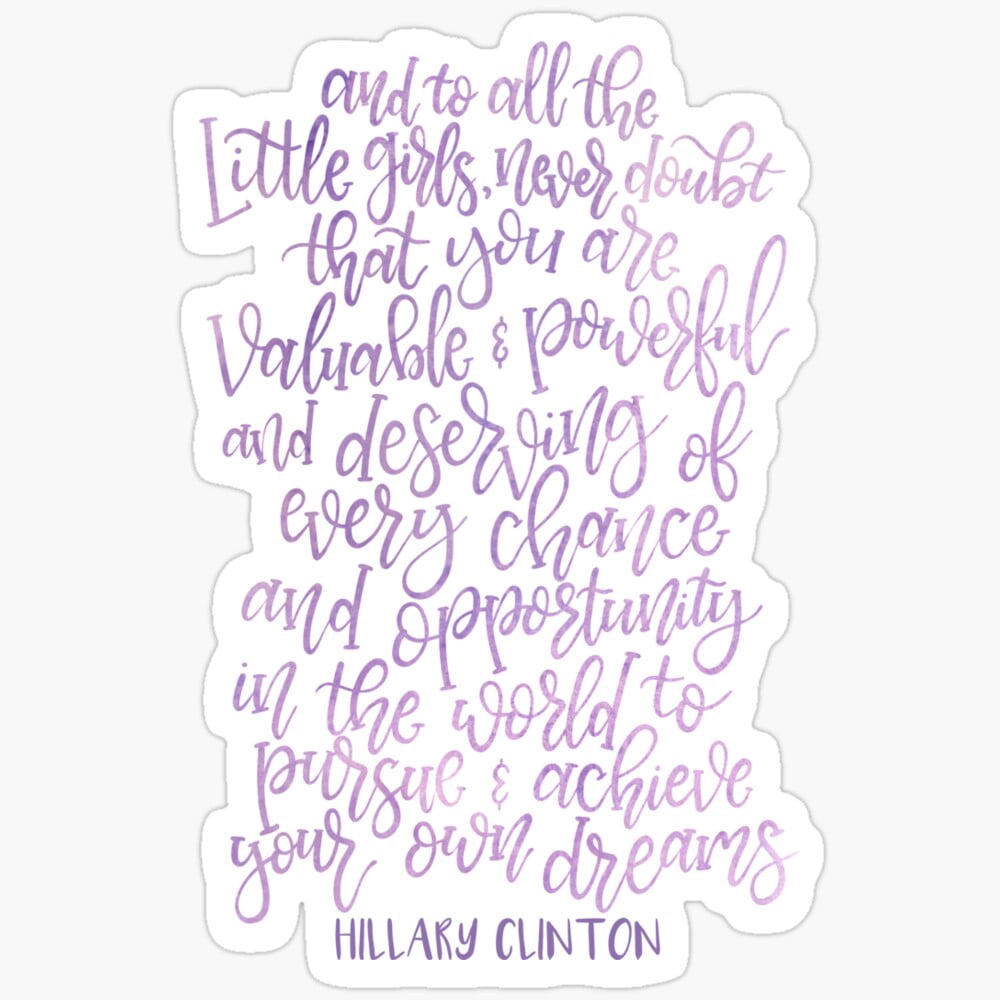 and to all the
Little girls, never doubt
that you are
Valuable & powerful
and deserving of
every chance
and opportunity
in the world to
pursue & achieve
your own dreams
HILLARY CLINTON